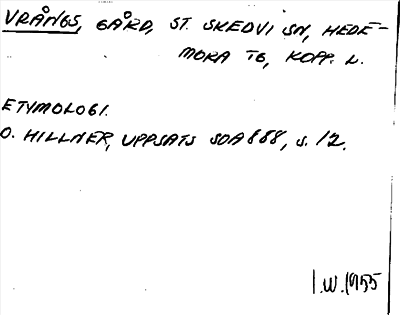 VRÅNGS, GÅRD, ST. SKEDVI SN, HEDE-
MORA TG, KOPP. L.
ETYMOLOGI.
O. HILLNER, UPPSATS SOA 868, s. 12.
I.W. 1955